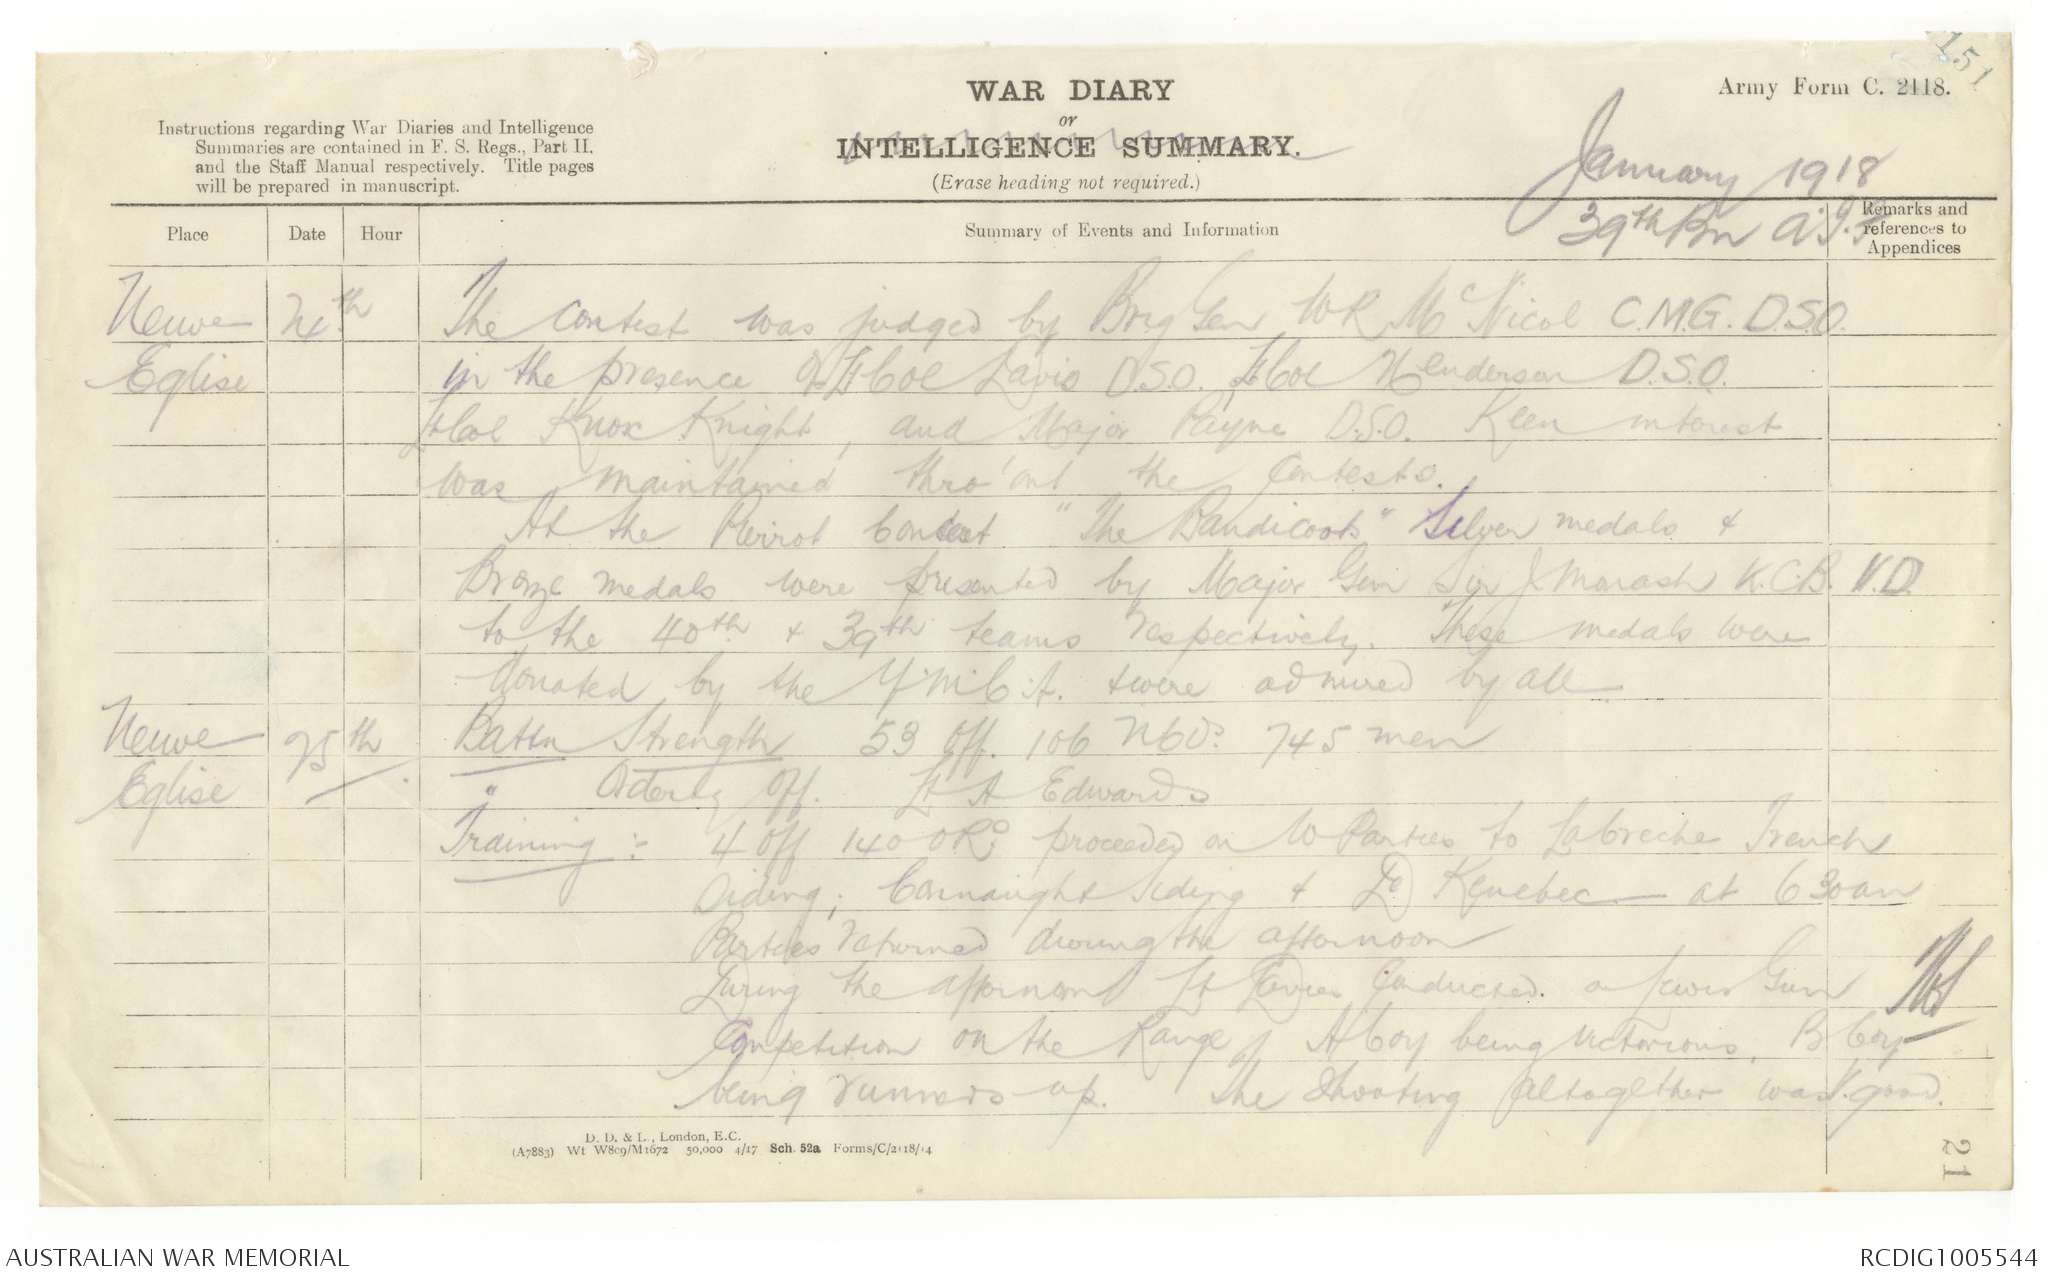 151
Army Form C. 2118.
WAR DIARY
or
INTELLIGENCE SUMMARY.
(Erase heading not required.)
Instructions regarding War Diaries and Intelligence
Summaries are contained in F. S. Regs., Part II,
and the Staff Manual respectively. Title pages
will be prepared in manuscript.
January 1918
39th Bn A.I.F
Place Date Hour Summary of Events and Information Remarks and
references to
Appendices
Neuve 24th The Contest was judged by Brig Gen W R McNicol C.M.G. D.S.O.
Eglise in the presence of Lt Col Davis D.S.O. Lt Col Henderson D.S.O.
Lt Col Knox Knight, and Major Payne D.S.O. Keen interest
was maintained thro'out the Contests.
At the Pierrot Contest "The Bandicoots" Silver medals &
Bronze medals were presented by Major Gen Sir J Monash K.C.B. V.D.
to the 40th & 39th teams respectively. These medals were
donated by the Y.M.C.A. & were admired by all
Neuve 25th Battn Strength 53 Off. 106 NCOs 745 men
Eglise " Orderly Off. Lt A Edwards
Training :- 4 Off 140 ORs proceeded on W Parties to Labreche Trench
Siding, Connaught Siding & De Kenebec at 6 30am
Parties returned during the afternoon
During the afternoon Lt conducted a Lewis Gun
Competition on the Range, A Coy being victorious, B Coy
being runners-up. The Shooting altogether was V. good.
D. D. & L., London, E.C.
(A7883) Wt W809/M1672 50,000 4/17 Sch. 52a Forms/C/2118/14
21
AUSTRALIAN WAR MEMORIAL
RCDIG1005544